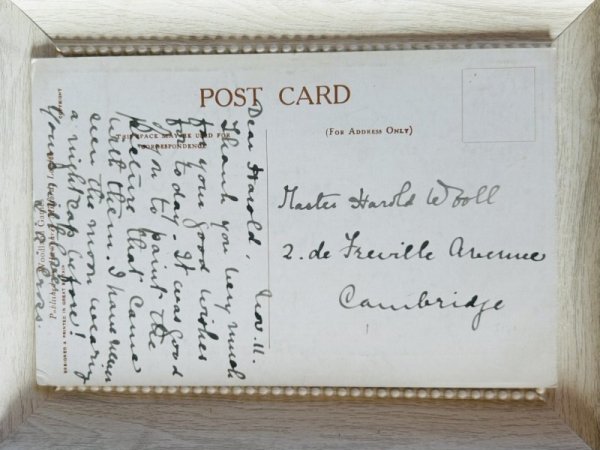 POST CARD
THIS SPACE MAY BE USED FOR
CORRESPONDENCE
(FOR ADDRESS ONLY)
Nov. 11.
Dear Harold,
Thank you very much
for your good wishes
for today. It was good
of you to paint the
picture that came
with them. I have never
seen the moon wearing
a nightcap before!
Master Harold Wooll
2. de Freville Avenue
Cambridge
COPYRIGHT
DESIGNED & PRINTED IN GREAT BRITAIN